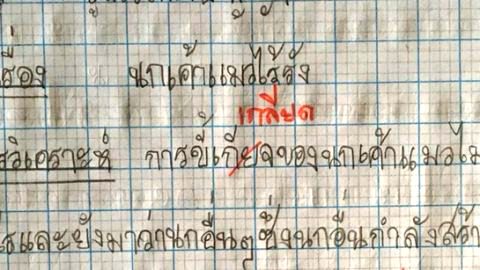 เรื่อง นกเค้าแมวไร้รัง
เกลียด
วิเคราะห์ การขี้เกียจของนกเค้าแมวไม
และยังมาว่านกอื่นๆ ซึ่งนกอื่นกำลังสร้า